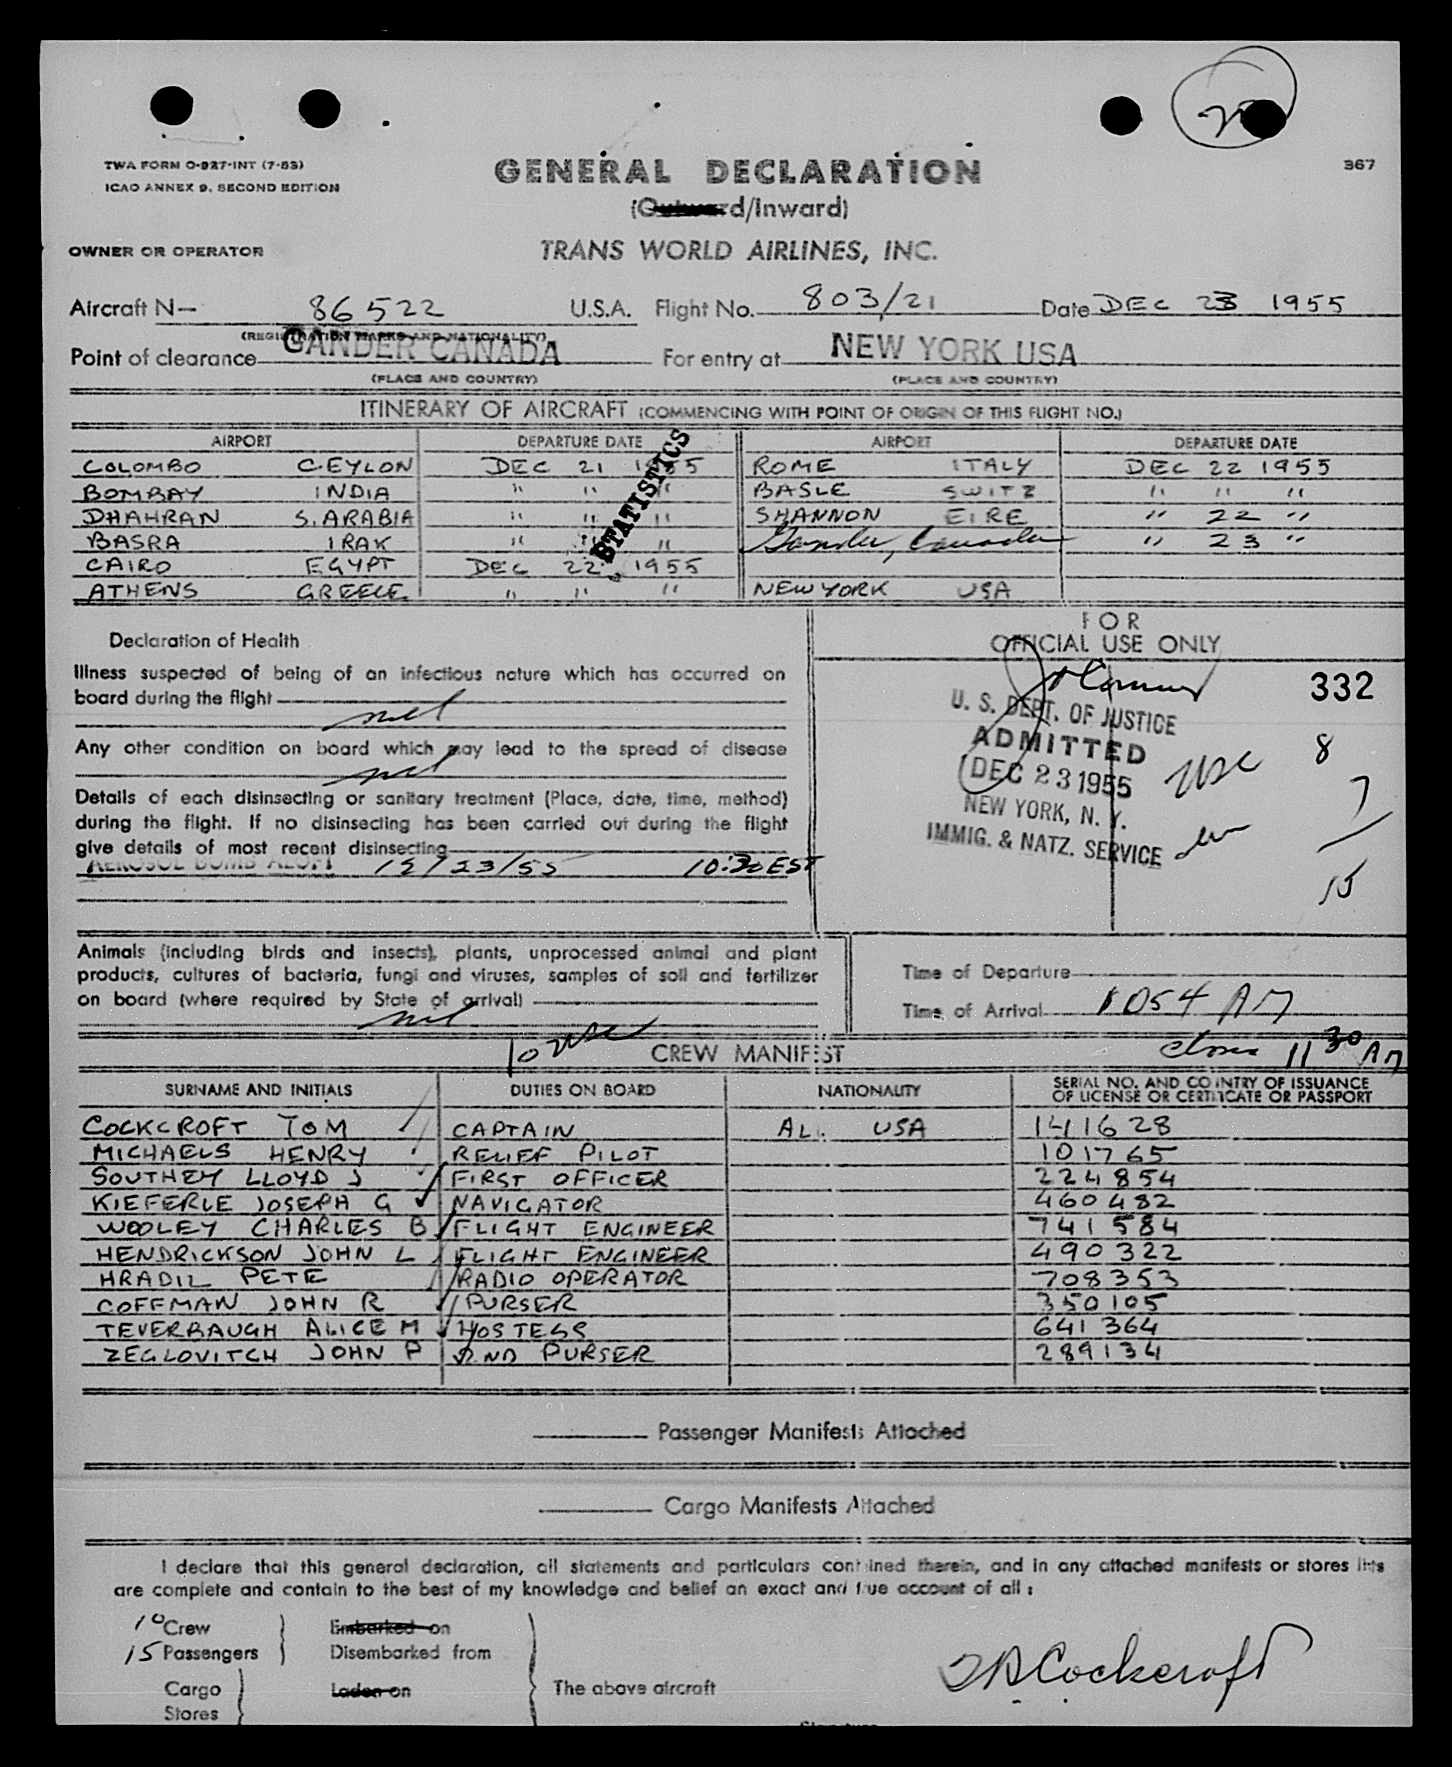 TWA FORM O-927-INT (7-53)
ICAO ANNEX 9, SECOND EDITION
GENERAL DECLARATION
367
(Outward/Inward)
OWNER OR OPERATOR TRANS WORLD AIRLINES, INC.
Aircraft N- 86522 U.S.A. Flight No. 803/21 Date DEC 23 1955
(REGISTRATION MARKS AND NATIONALITY)
Point of clearance GANDER CANADA For entry at NEW YORK USA
(PLACE AND COUNTRY) (PLACE AND COUNTRY)
ITINERARY OF AIRCRAFT (COMMENCING WITH POINT OF ORIGIN OF THIS FLIGHT NO.)
AIRPORT DEPARTURE DATE AIRPORT DEPARTURE DATE
COLOMBO CEYLON DEC 21 1955 ROME ITALY DEC 22 1955
BOMBAY INDIA " " " BASLE SWITZ " " "
DHAHRAN S. ARABIA " " " SHANNON EIRE " 22 "
BASRA IRAK " " " Gander, Canada " 23 "
CAIRO EGYPT DEC 22 1955
ATHENS GREECE " " " NEW YORK USA
STATISTICS
Declaration of Health
Illness suspected of being of an infectious nature which has occurred on
board during the flight
nil
Any other condition on board which may lead to the spread of disease
nil
Details of each disinsecting or sanitary treatment (Place, date, time, method)
during the flight. If no disinsecting has been carried out during the flight
give details of most recent disinsecting
AEROSOL BOMB ALOFT 12/23/55 10:30 EST
FOR
OFFICIAL USE ONLY
332
U. S. DEPT. OF JUSTICE
ADMITTED
DEC 23 1955
NEW YORK, N. Y.
IMMIG. & NATZ. SERVICE
usc 8
7
15
Animals (including birds and insects), plants, unprocessed animal and plant
products, cultures of bacteria, fungi and viruses, samples of soil and fertilizer
on board (where required by State of arrival)
nil
Time of Departure
Time of Arrival 1054 AM
10 usc CREW MANIFEST 11 30 AM
SURNAME AND INITIALS DUTIES ON BOARD NATIONALITY SERIAL NO. AND COUNTRY OF ISSUANCE
OF LICENSE OR CERTIFICATE OR PASSPORT
COCKCROFT TOM CAPTAIN ALL USA 141628
MICHAELS HENRY RELIEF PILOT 101765
SOUTHEY LLOYD J FIRST OFFICER 224854
KIEFERLE JOSEPH G NAVIGATOR 460482
WOOLEY CHARLES B FLIGHT ENGINEER 741584
HENDRICKSON JOHN L FLIGHT ENGINEER 490322
HRADIL PETE RADIO OPERATOR 708353
COFFMAN JOHN R PURSER 350105
TEVERBAUGH ALICE M HOSTESS 641364
ZEGLOVITCH JOHN P 2ND PURSER 289134
Passenger Manifests Attached
Cargo Manifests Attached
I declare that this general declaration, all statements and particulars contained therein, and in any attached manifests or stores lists
are complete and contain to the best of my knowledge and belief an exact and true account of all :
10 Crew Embarked on
15 Passengers Disembarked from
Cargo Laden on The above aircraft
Stores
T B Cockcroft